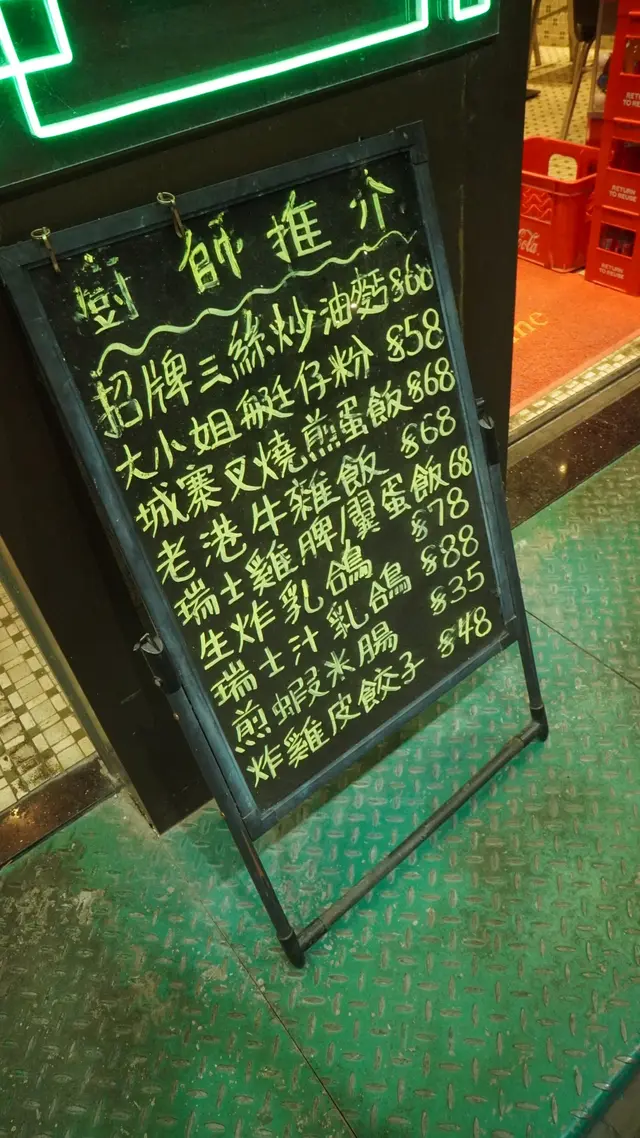 廚師推介
招牌三絲炒油麵$68
大小姐艇仔粉 $58
城寨叉燒煎蛋飯$68
老港牛雜飯 $68
瑞士雞脾/翼蛋飯68
生炸乳鴿 $78
瑞士汁乳鴿 $88
煎蝦米腸 $35
炸雞皮餃子 $48
Coca-Cola
RETURN TO REUSE
RETURN TO REUSE